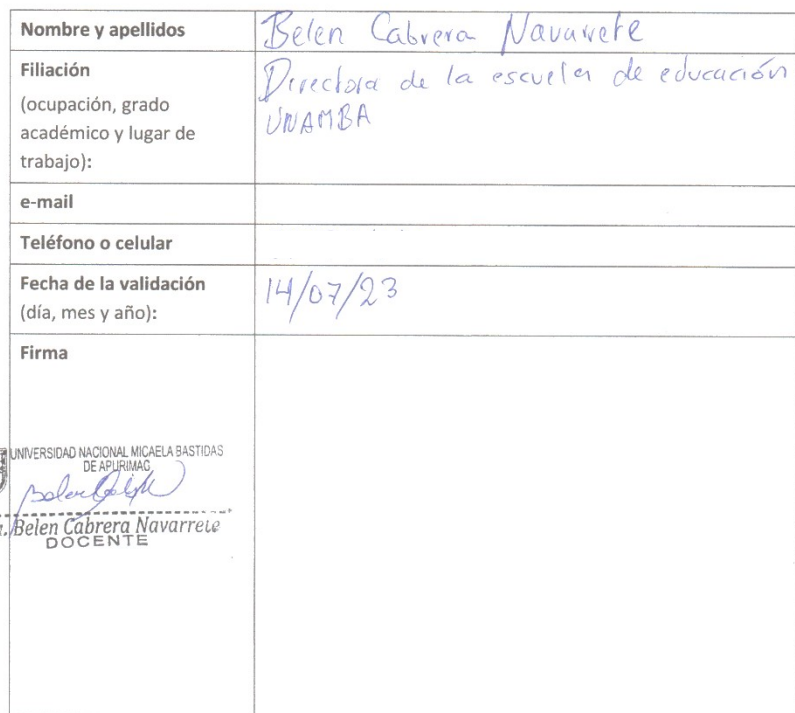 Nombre y apellidos
Belen Cabrera Navarrete
Filiación
(ocupación, grado
académico y lugar de
trabajo):
Directora de la escuela de educación
UNAMBA
e-mail
Teléfono o celular
Fecha de la validación
(día, mes y año):
14/07/23
Firma
UNIVERSIDAD NACIONAL MICAELA BASTIDAS
DE APURIMAC
Belen Cabrera Navarrete
DOCENTE